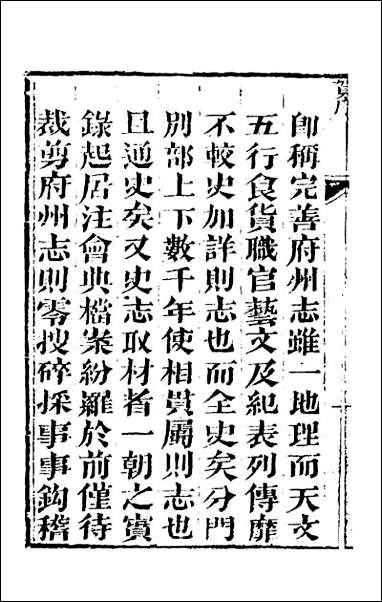 卽稱完善府州志雖一地理而天文
五行食貨職官藝文及紀表列傳靡
不較史加詳則志也而全史矣分門
別部上下數千年使相貫屬則志也
且通史矣又史志取材者一朝之實
錄起居注會典檔案紛羅於前僅待
裁剪府州志則零搜碎採事事鈎稽